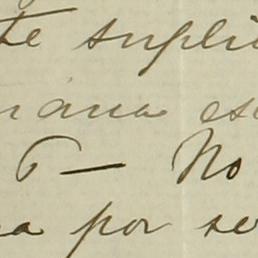 te supli
nana es
6 — No
a por se